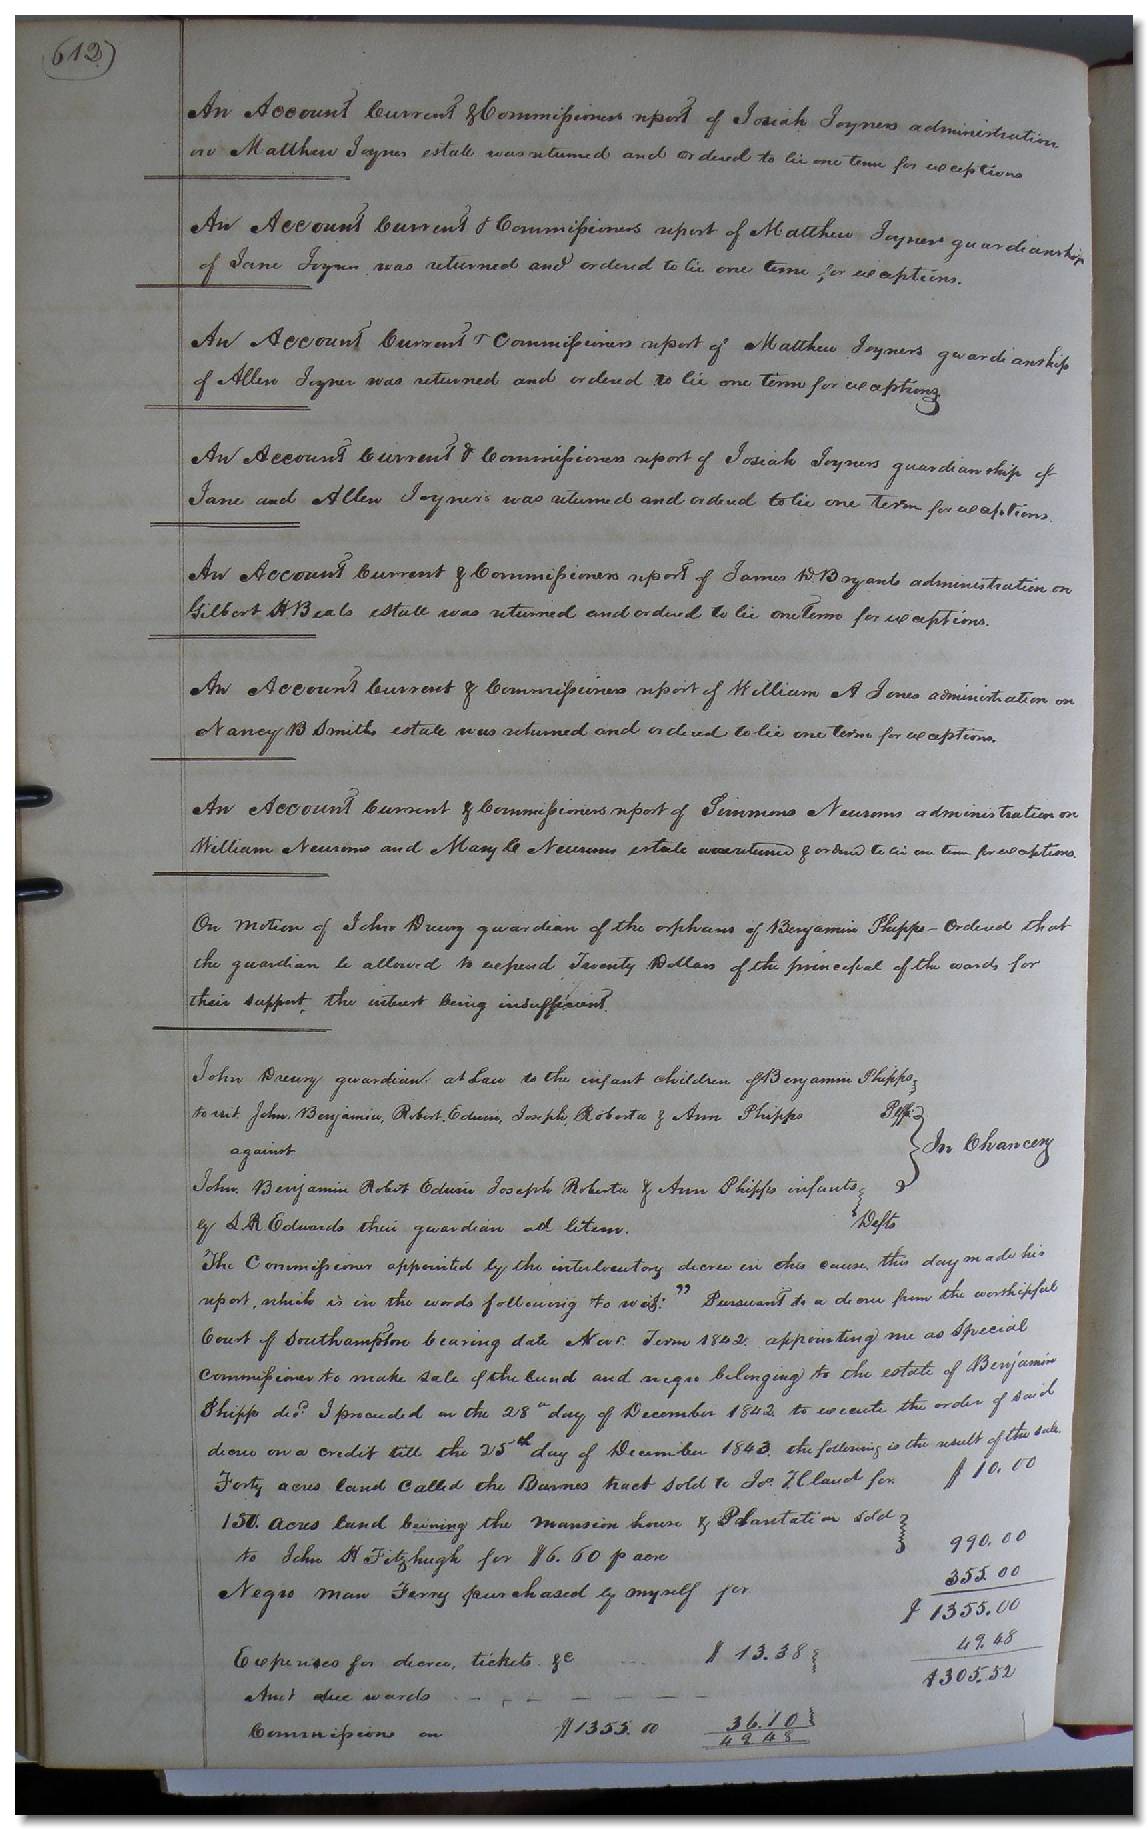 612
An Account Current & Commissioners report of Josiah Joyners administration
on Matthew Joyner estate was returned and ordered to lie one term for exceptions
An Account Current & Commissioners report of Matthew Joyners guardianship
of Jane Joyner was returned and ordered to lie one term for exceptions.
An Account Current & Commissioners report of Matthew Joyners guardianship
of Allen Joyner was returned and ordered to lie one term for exceptions
An Account Current & Commissioners report of Josiah Joyners guardianship of
Jane and Allen Joyners was returned and ordered to lie one term for exceptions.
An Account Current & Commissioners report of James D Bryants administration on
Gilbert H Beals estate was returned and ordered to lie one Term for exceptions.
An Account Current & Commissioners report of William A Jones administration on
Nancy B Smiths estate was returned and ordered to lie one term for exceptions.
An Account Current & Commissioners report of Simmons Newsoms administration on
William Newsoms and Mary C Newsoms estate was returned & ordered to lie one term for exceptions.
On motion of John Drewry guardian of the orphans of Benjamin Phipps - Ordered that
the guardian be allowed to expend Twenty Dollars of the principal of the wards for
their support, the interest being insufficient.
John Drewry guardian at Law to the infant children of Benjamin Phipps
to wit John, Benjamin, Robert, Edwin, Joseph, Roberta & Ann Phipps Plffs
against In Chancery
John, Benjamin Robert Edwin Joseph Roberta & Ann Phipps infants
by L R Edwards their guardian ad litem. Defts
The Commissioner appointed by the interlocutory decree in this cause, this day made his
report, which is in the words following to wit: " Pursuant to a decree from the worshipful
Court of Southampton bearing date Novr. Term 1842. appointing me as Special
Commissioner to make sale of the land and negro belonging to the estate of Benjamin
Phipps decd. I proceeded on the 28th day of December 1842 to execute the order of said
decree on a credit till the 25th day of December 1843. the following is the result of the sale.
Forty acres land called the Barnes tract sold to Jos. T. Claud for $ 10.00
150. acres land being the mansion house & Plantation sold
to John H Fitzhugh for $6.60 p acre 990.00
Negro man Ferry purchased by myself for 355.00
$ 1355.00
Expenses for decree, tickets &c $ 13.38 49.48
Amt due wards 1305.52
Commission on $1355.00 36.10
49.48